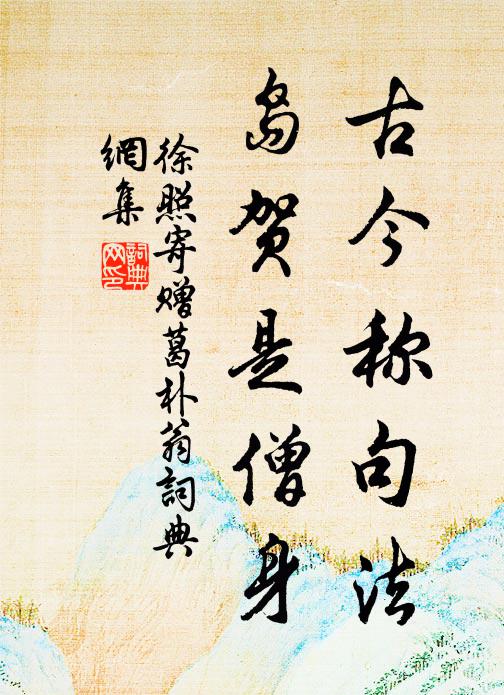 古今称句法
岛贺是僧身
徐照寄赠葛朴翁詞典
網集
詞典
网印